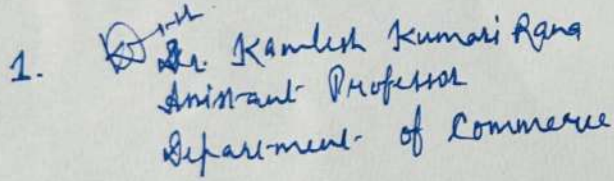 1. Dr. Kamlesh Kumari Rana
Assistant Professor
Department of Commerce